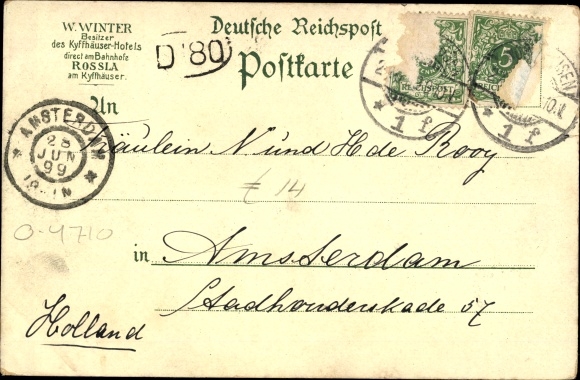 W. WINTER
Besitzer
des Kyffhäuser-Hotels
direct am Bahnhofe
ROSSLA
am Kyffhäuser.
Deutsche Reichspost
Postkarte
D'80
5
REICHSPOST
1 f
1 f
An
AMSTERDAM
28
JUN
99
Fräulein N und H de Rooy
£ 14
0-4710
in Amsterdam
Stadhouderskade 57
Holland